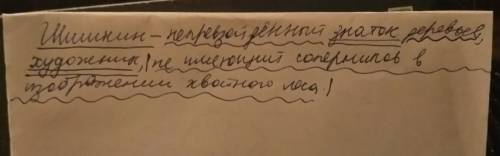 Шишкин - непревзойдённый знаток деревьев,
художник, не имеющий соперников в
изображении хвойного леса.